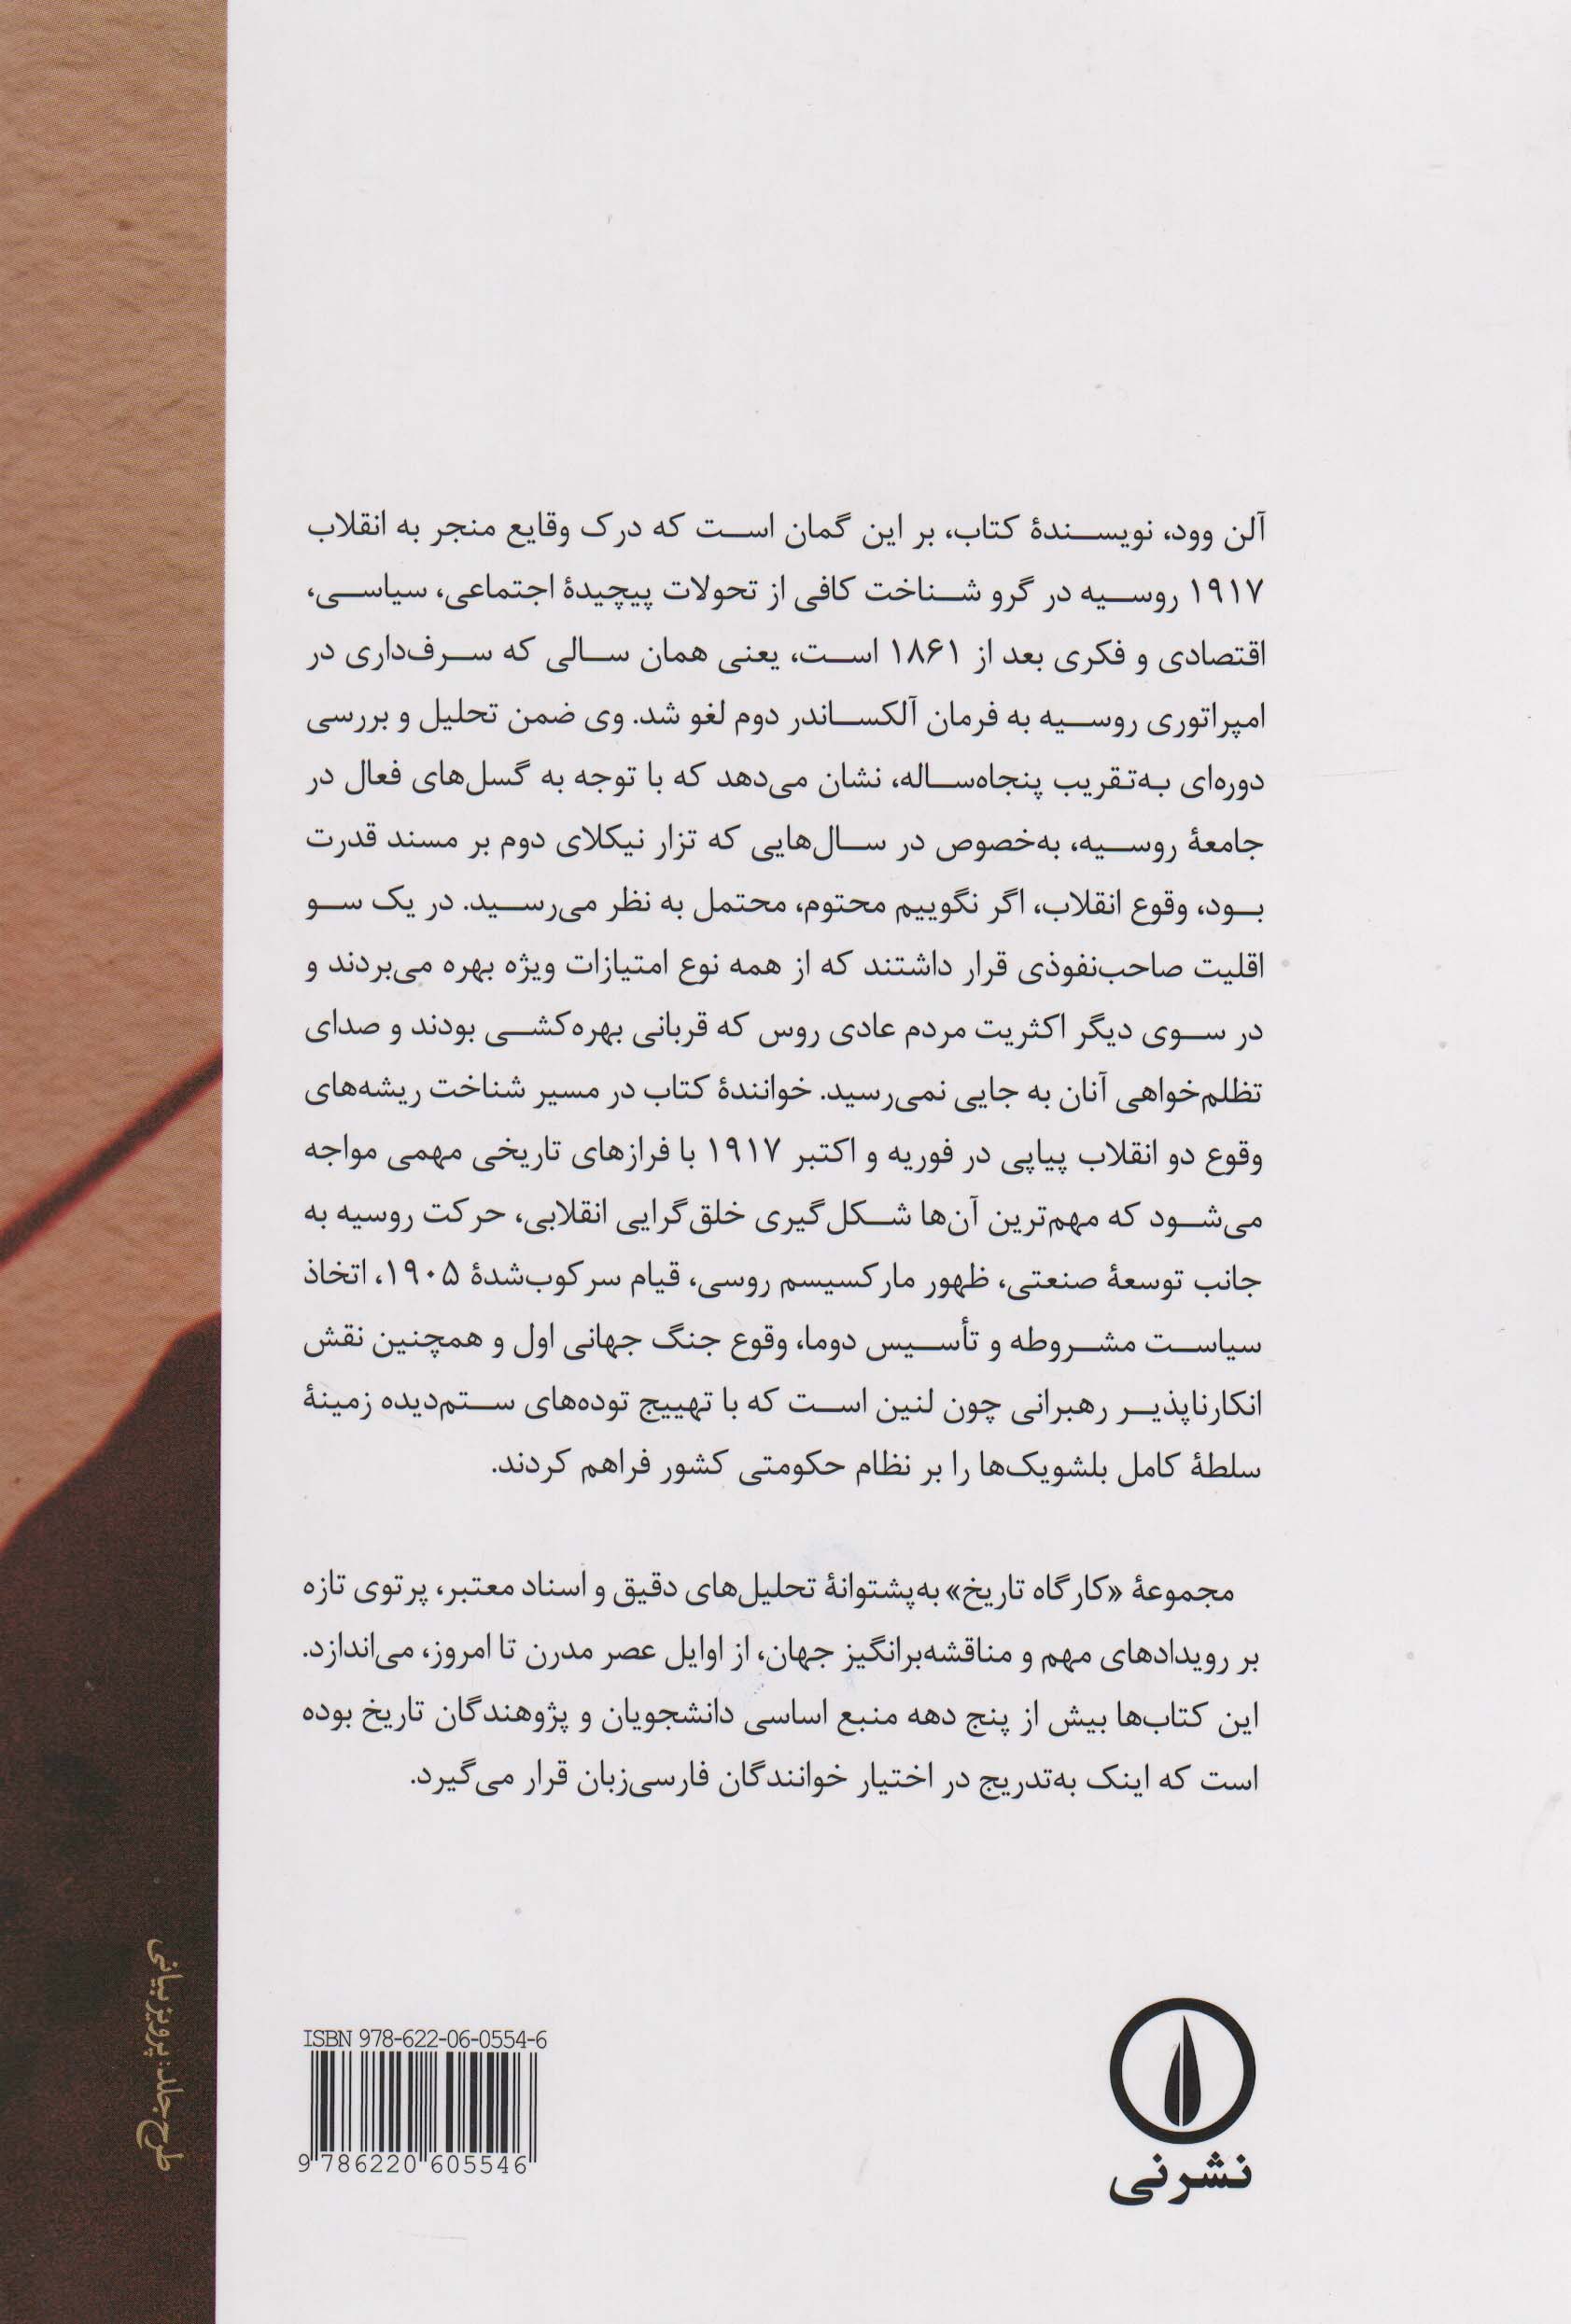 آلن وود، نویسندهٔ کتاب، بر این گمان است که درک وقایع منجر به انقلاب
۱۹۱۷ روسیه در گرو شناخت کافی از تحولات پیچیدهٔ اجتماعی، سیاسی،
اقتصادی و فکری بعد از ۱۸۶۱ است، یعنی همان سالی که سرف‌داری در
امپراتوری روسیه به فرمان آلکساندر دوم لغو شد. وی ضمن تحلیل و بررسی
دوره‌ای به‌تقریب پنجاه‌ساله، نشان می‌دهد که با توجه به گسل‌های فعال در
جامعهٔ روسیه، به‌خصوص در سال‌هایی که تزار نیکلای دوم بر مسند قدرت
بود، وقوع انقلاب، اگر نگوییم محتوم، محتمل به نظر می‌رسید. در یک سو
اقلیت صاحب‌نفوذی قرار داشتند که از همه نوع امتیازات ویژه بهره می‌بردند و
در سوی دیگر اکثریت مردم عادی روس که قربانی بهره‌کشی بودند و صدای
تظلم‌خواهی آنان به جایی نمی‌رسید. خوانندهٔ کتاب در مسیر شناخت ریشه‌های
وقوع دو انقلاب پیاپی در فوریه و اکتبر ۱۹۱۷ با فرازهای تاریخی مهمی مواجه
می‌شود که مهم‌ترین آن‌ها شکل‌گیری خلق‌گرایی انقلابی، حرکت روسیه به
جانب توسعهٔ صنعتی، ظهور مارکسیسم روسی، قیام سرکوب‌شدهٔ ۱۹۰۵، اتخاذ
سیاست مشروطه و تأسیس دوما، وقوع جنگ جهانی اول و همچنین نقش
انکارناپذیر رهبرانی چون لنین است که با تهییج توده‌های ستم‌دیده زمینهٔ
سلطهٔ کامل بلشویک‌ها را بر نظام حکومتی کشور فراهم کردند.
مجموعهٔ «کارگاه تاریخ» به‌پشتوانهٔ تحلیل‌های دقیق و اسناد معتبر، پرتوی تازه
بر رویدادهای مهم و مناقشه‌برانگیز جهان، از اوایل عصر مدرن تا امروز، می‌اندازد.
این کتاب‌ها بیش از پنج دهه منبع اساسی دانشجویان و پژوهندگان تاریخ بوده
است که اینک به‌تدریج در اختیار خوانندگان فارسی‌زبان قرار می‌گیرد.
طرح جلد: پرویز بیانی
ISBN 978-622-06-0554-6
9 786220 605546
نشرنی